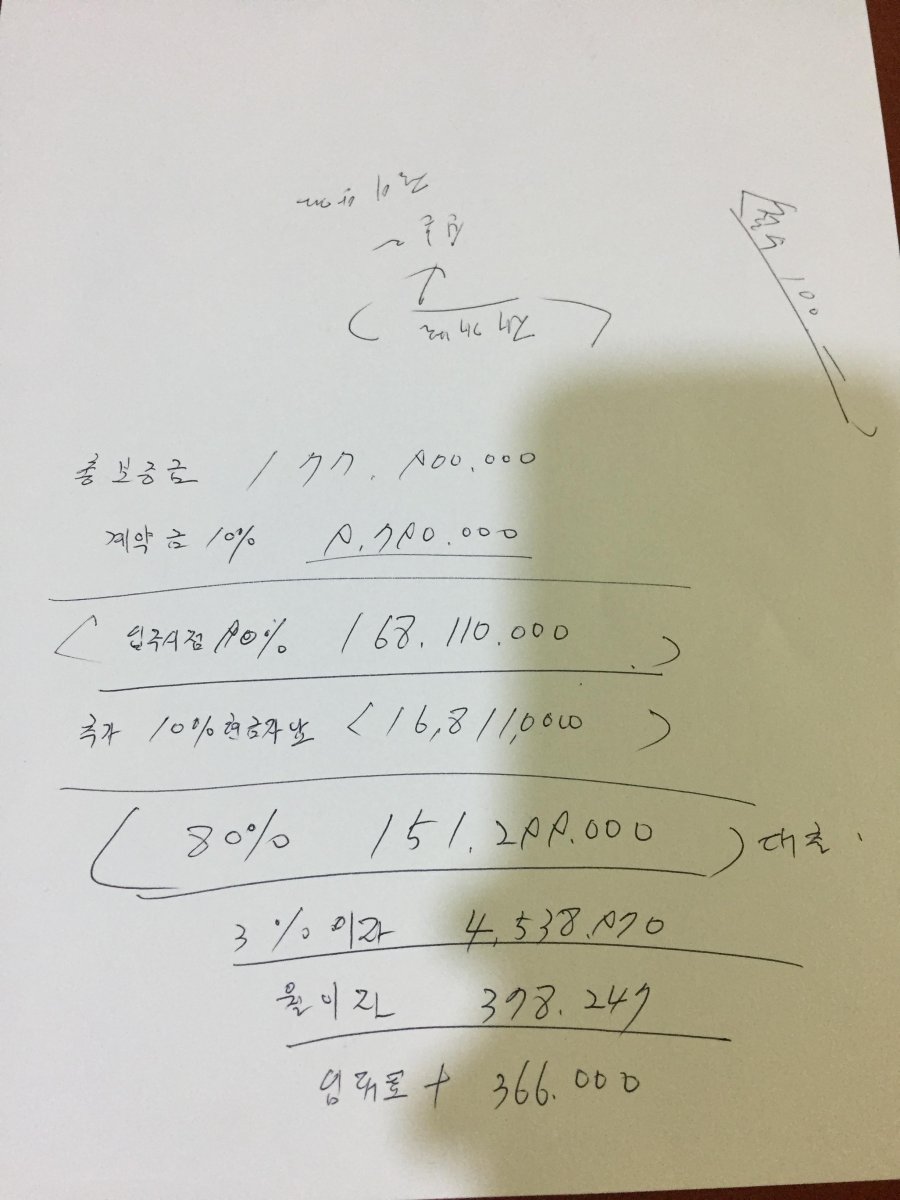 100
총 보증금 177.900.000
계약금 10% 9.790.000
입주시점 90% 168.110.000
추가 10% 현금자납 (16,811,000)
(80% 151.299.000) 대출.
3% 이자 4,538.970
월이자 378.247
임대료 + 366.000